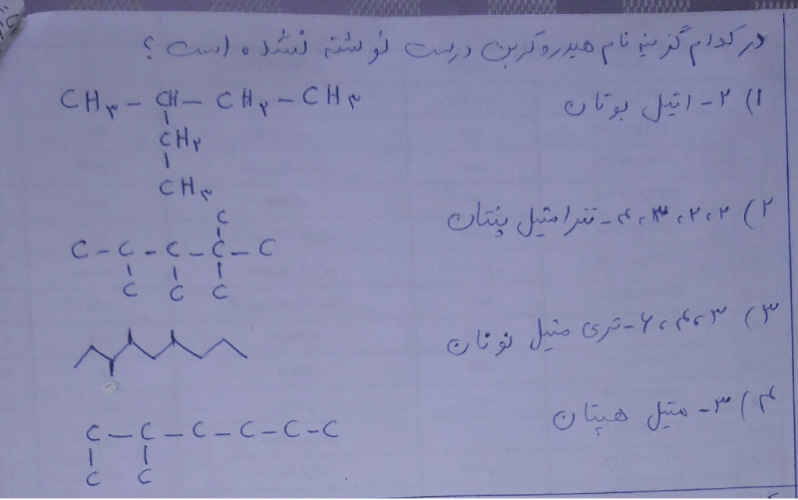 در کدام گزینه نام هیدروکربن درست نوشته نشده است؟
۱) ۲- اتیل بوتان
CH۳ - CH - CH۲ - CH۳
CH۲
CH۳
۲) ۲،۲،۳،۴- تترامتیل پنتان
C
C - C - C - C - C
C C C
۳) ۳،۴،۶- تری متیل نونان
۴) ۳- متیل هپتان
C - C - C - C - C - C
C C